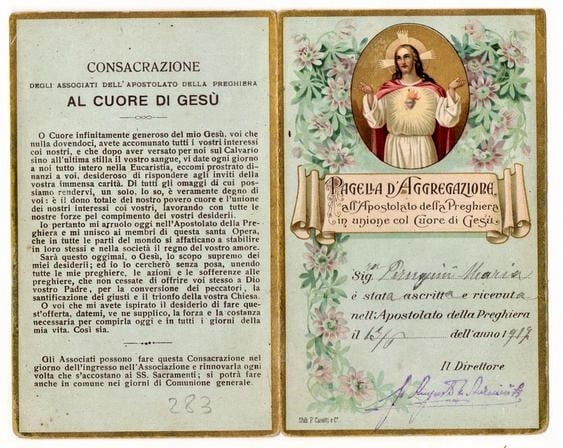 CONSACRAZIONE
DEGLI ASSOCIATI DELL'APOSTOLATO DELLA PREGHIERA
AL CUORE DI GESÙ
O Cuore infinitamente generoso del mio Gesù, voi che
nulla dovendoci, avete accomunato tutti i vostri interessi
coi nostri, e che dopo aver versato per noi sul Calvario
sino all'ultima stilla il vostro sangue, vi date ogni giorno
a noi tutto intero nella Eucaristia, eccomi prostrato di-
nanzi a voi, desideroso di rispondere agli inviti della
vostra immensa carità. Di tutti gli omaggi di cui pos-
siamo rendervi, un solo, lo so, è veramente degno di
voi: è il dono totale del nostro povero cuore e l'unione
dei nostri interessi coi vostri, lavorando con tutte le
nostre forze pel compimento dei vostri desiderii.
Io pertanto mi arruolo oggi nell'Apostolato della Pre-
ghiera e mi unisco ai membri di questa santa Opera,
che in tutte le parti del mondo si affaticano a stabilire
in loro stessi e nella società il regno del vostro amore.
Sarà questo oggimai, o Gesù, lo scopo supremo dei
miei desiderii; ed io lo cercherò senza posa, unendo
tutte le mie preghiere, le azioni e le sofferenze alle
preghiere, che non cessate di offrire voi stesso a Dio
vostro Padre, per la conversione dei peccatori, la
santificazione dei giusti e il trionfo della vostra Chiesa.
O voi che mi avete ispirato il desiderio di fare que-
st'offerta, datemi, ve ne supplico, la forza e la costanza
necessaria per compirla oggi e in tutti i giorni della
mia vita. Così sia.
Gli Associati possono fare questa Consacrazione nel
giorno dell'ingresso nell'Associazione e rinnovarla ogni
volta che s'accostano ai SS. Sacramenti; si potrà fare
anche in comune nei giorni di Comunione generale.
283
PAGELLA D'AGGREGAZIONE
all'Apostolato della Preghiera
in unione col Cuore di Gesù.
Sig. Maria
è stata ascritta e ricevuta
nell'Apostolato della Preghiera
il dell'anno 1917
Il Direttore
Stab. P. Canetti e Cº